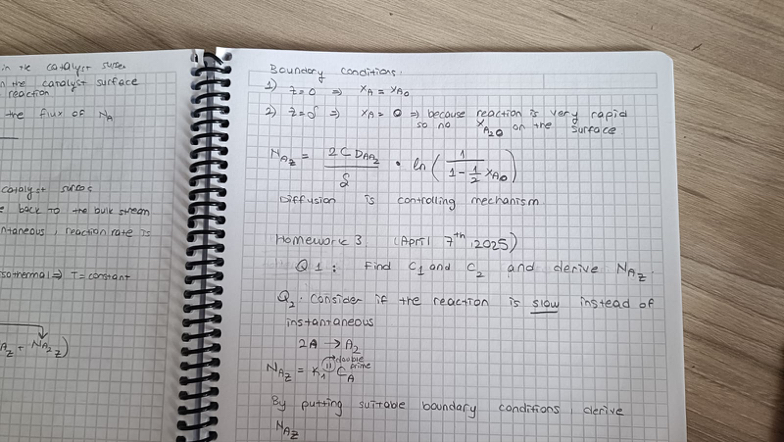 in the catalyst surfac
n the catalyst surface
reaction.
the flux of NA
catalyst surfac
e back to the bulk stream
ntaneous, reaction rate is
isothermal ⇒ T = constant
Az + NA2z)
Boundary conditions:
1) z=0 ⇒ xA = xA0
2) z=δ ⇒ xA = 0 ⇒ because reaction is very rapid
so no xA20 on the surface
NAz = 2 C DAA2 / δ • ln ( 1 / 1 - 1/2 xA0 )
Diffusion is controlling mechanism.
Homework 3. (April 7th, 2025)
Q1: Find C1 and C2 and derive NAz
Q2. Consider if the reaction is slow instead of
instantaneous
2A → A2
NAz = K1'' CA → double prime
By putting suitable boundary conditions, derive
NAz